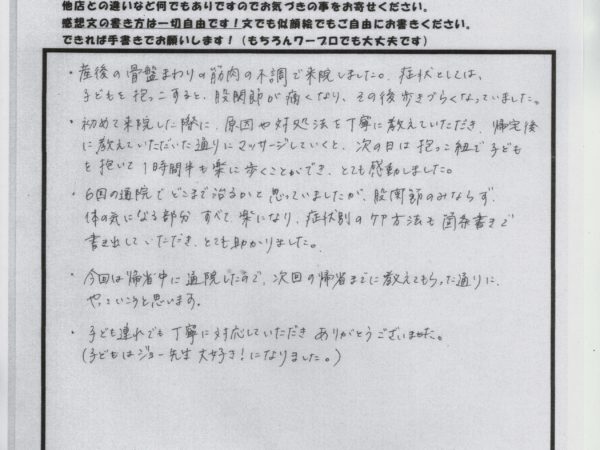 他店との違いなど何でもありですのでお気づきの事をお寄せください。
感想文の書き方は一切自由です！文でも似顔絵でもご自由にお書きください。
できれば手書きでお願いします！（もちろんワープロでも大丈夫です）
・産後の骨盤まわりの筋肉の不調で来院しました。症状としては、
子どもを抱っこすると、股関節が痛くなり、その後歩きづらくなっていました。
・初めて来院した際に、原因や対処法を丁寧に教えていただき、帰宅後
に教えていただいた通りにマッサージしていくと、次の日は抱っこ紐で子ども
を抱いて1時間半も楽に歩くことができ、とても感動しました。
・6回の通院でどこまで治るかと思っていましたが、股関節のみならず、
体の気になる部分すべて楽になり、症状別のケア方法も箇条書きで
書き出していただき、とても助かりました。
・今回は帰省中に通院したので、次回の帰省までに教えてもらった通りに、
やっていこうと思います。
・子ども連れでも丁寧に対応していただきありがとうございました。
(子どもはジョー先生大好き！になりました。)